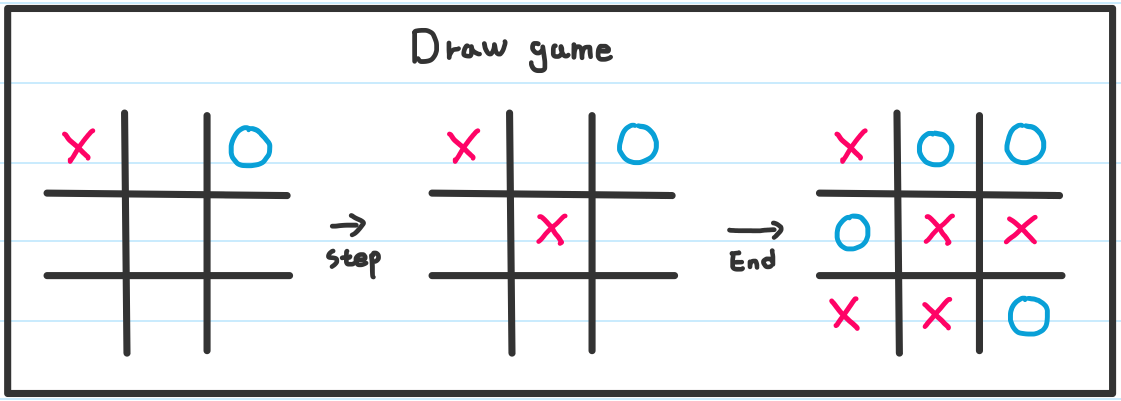 Draw game
X O
step
X O
X
End
X O O
O X X
X X O